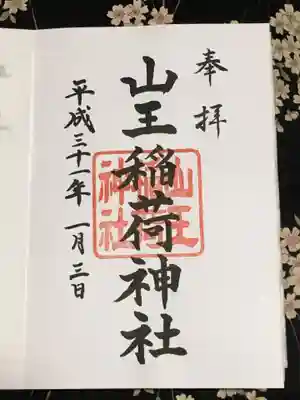 奉拝
山王稲荷神社
山王稲荷神社
平成三十一年一月三日